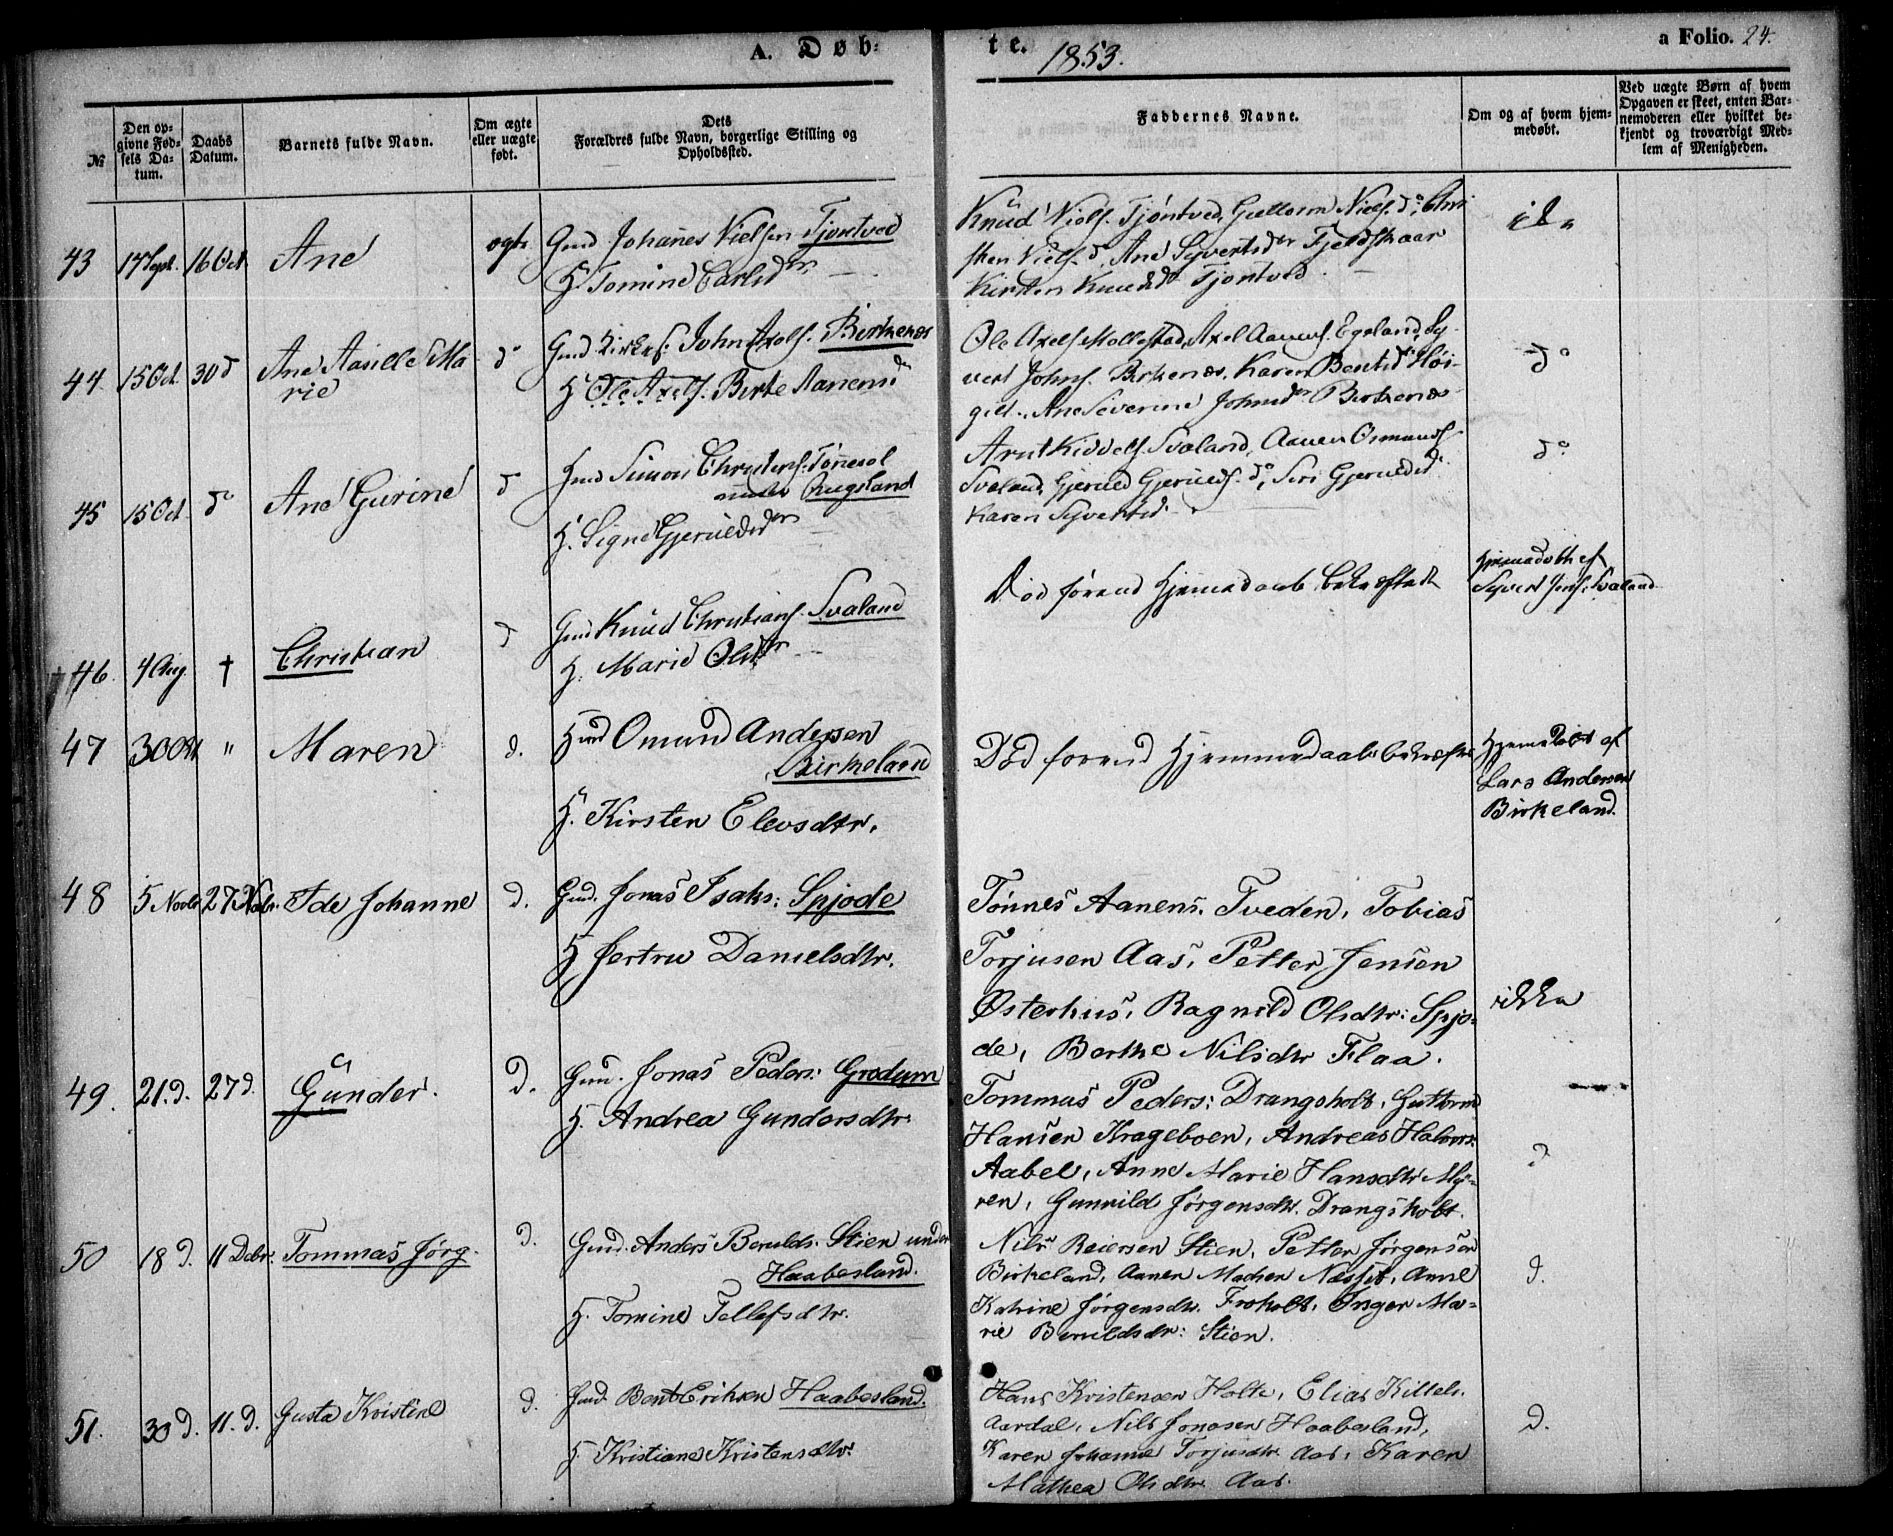 A. Døb=
te.
1853.
a Folio. 24.
№
Den op-
givne Fød-
sels Da-
tum.
Daabs
Datum.
Barnets fulde Navn.
Om ægte
eller uægte
født.
Dets
Forældres fulde Navn, borgerlige Stilling og
Opholdssted.
Faddernes Navne.
Om og af hvem hjem-
medøbt.
Ved uægte Børn af hvem
Opgaven er skeet, enten Bar-
nemoderen eller hvilket be-
kjendt og troværdigt Med-
lem af Menigheden.
43
17 Sept.
16 Oct
Ane
ægte
Gmd Johanes Nielsen Tjøntved
H. Tomine Carlsdr
Knud Niels. Tjøntved, Guttorm Niels. do, Chri
sten Niels. d, Ane Syvertsdr Fjeldskaar
Kirsten Knudsd Tjøntved
ik.
44
15 Oct.
30 d
Ane Aasille Ma
rie
do
Gmd Kirkes. John Axels. Birkenes
H Ole Axels. Birte Aanensd
Ole Axels Mollestad, Axel Aanens. Egeland, Sy-
vert Johns. Birkenes, Karen Bentsd Høi-
gilt. Ane Severine Johnsdr Birkenes
do
45
15 Oct.
do
Ane Gurine
d
Hmd Simon Christens. Tønnesol
under Rugsland
H. Signe Gjeruldsdr
Arnt Kiddels. Svaland, Aanen Osmunds
Svaland, Gjeruld Gjerulds. do, Siri Gjeruldsd
Karen Syvertsd
do
46.
4 Aug
†
Christian
d
Gmd Knud Christians. Svaland
H. Marie Olsdtr
Død førend Hjemedaab bekræftedt
Hjemedøbt af
Syvert Jens. Svaland
47
30 Oct
"
Maren
d.
Hmd Omund Andersen
Birkeland
H. Kirsten Elevsdtr.
Død førend Hjemmedaab bekræftet
Hjemedøbt af
Lars Andersen
Birkeland.
48
5 Novbr
27 Nvbr.
Ide Johanne
d.
Gmd. Jonas Isaks: Spjode
H Jertru Danielsdtr.
Tønnes Aanens. Tveden, Tobias
Torjusen Aas, Petter Jensen
Østerhus, Ragnild Olsdtr: Spjo-
de, Berthe Nilsdtr Flaa.
ikke
49.
21. d.
27 d.
Gunder.
d.
Gmd. Jonas Peders: Grødum
H. Andrea Gundersdtr.
Tommas Peders: Drangsholt, Guttorm
Hansen Krageboen, Andreas Halvors:
Aabel, Anne Marie Hansdtr My-
ren, Gunnild Jørgensdtr. Drangsholt.
d
50
18 d.
11 Debr.
Tommas Jørg.
d.
Gmd. Anders Berulds. Stien under
Haabesland.
H. Tomine Tellefsdtr.
Nils Reiersen Stien, Petter Jørgensen
Birkeland, Aanen Madsen Næsset, Anne
Katrine Jørgensdtr. Frøholt, Inger Ma-
rie Beruldsdtr: Stien.
d.
51.
30 d.
11. d.
Gusta Kristine
d.
Gmd. Bent Eriksen Haabesland.
H. Kristiane Kristensdtr.
Hans Kristensen Holte, Elias Kittels.
Aardal, Nils Jonasen Haabesland,
Karen Johanne Torjusdtr. Aas, Karen
Mathea Olsdtr Aas.
d.